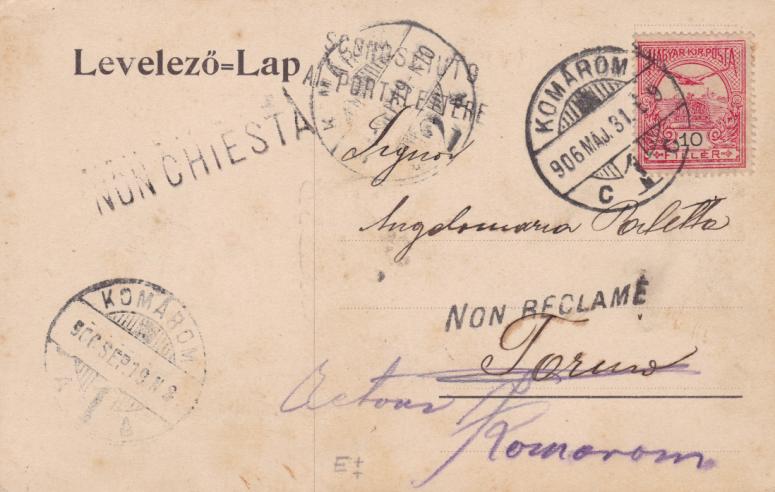 Levelező=Lap
SCONOSCIUTO
AI PORTALETTERE
MAGYAR KIR. POSTA
10
FILLÉR
KOMÁROM
906 MÁJ. 31.
C
NON CHIESTA
Signor
Angelomaria Parletta
NON RECLAMÉ
Torino
KOMÁROM
906 SEP 19
Retour
Komarom